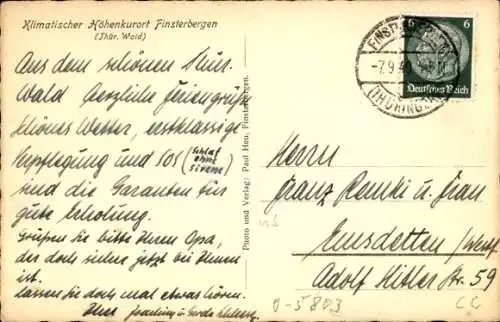 Klimatischer Höhenkurort Finsterbergen
(Thür. Wald)
Aus dem schönen Thür.
Wald herzliche Feriengrüße
Schönes Wetter, erstklassige
Verpflegung und SOS (Schlaf
ohne
Sirene)
sind die Garanten für
gute Erholung.
Grüßen Sie bitte Ihren Opa,
der doch sicher jetzt bei Ihnen
ist.
Lassen Sie doch mal etwas hören.
Ihre Joachim u. Gerda
Photo und Verlag: Paul Heu, Finsterbergen.
FINSTERBERGEN
-7.9.4
(THÜRINGEN)
6
6
Deutsches Reich
Herrn
Franz u. Frau
Emsdetten/Westf
Adolf Hitler Str. 59
J-5803